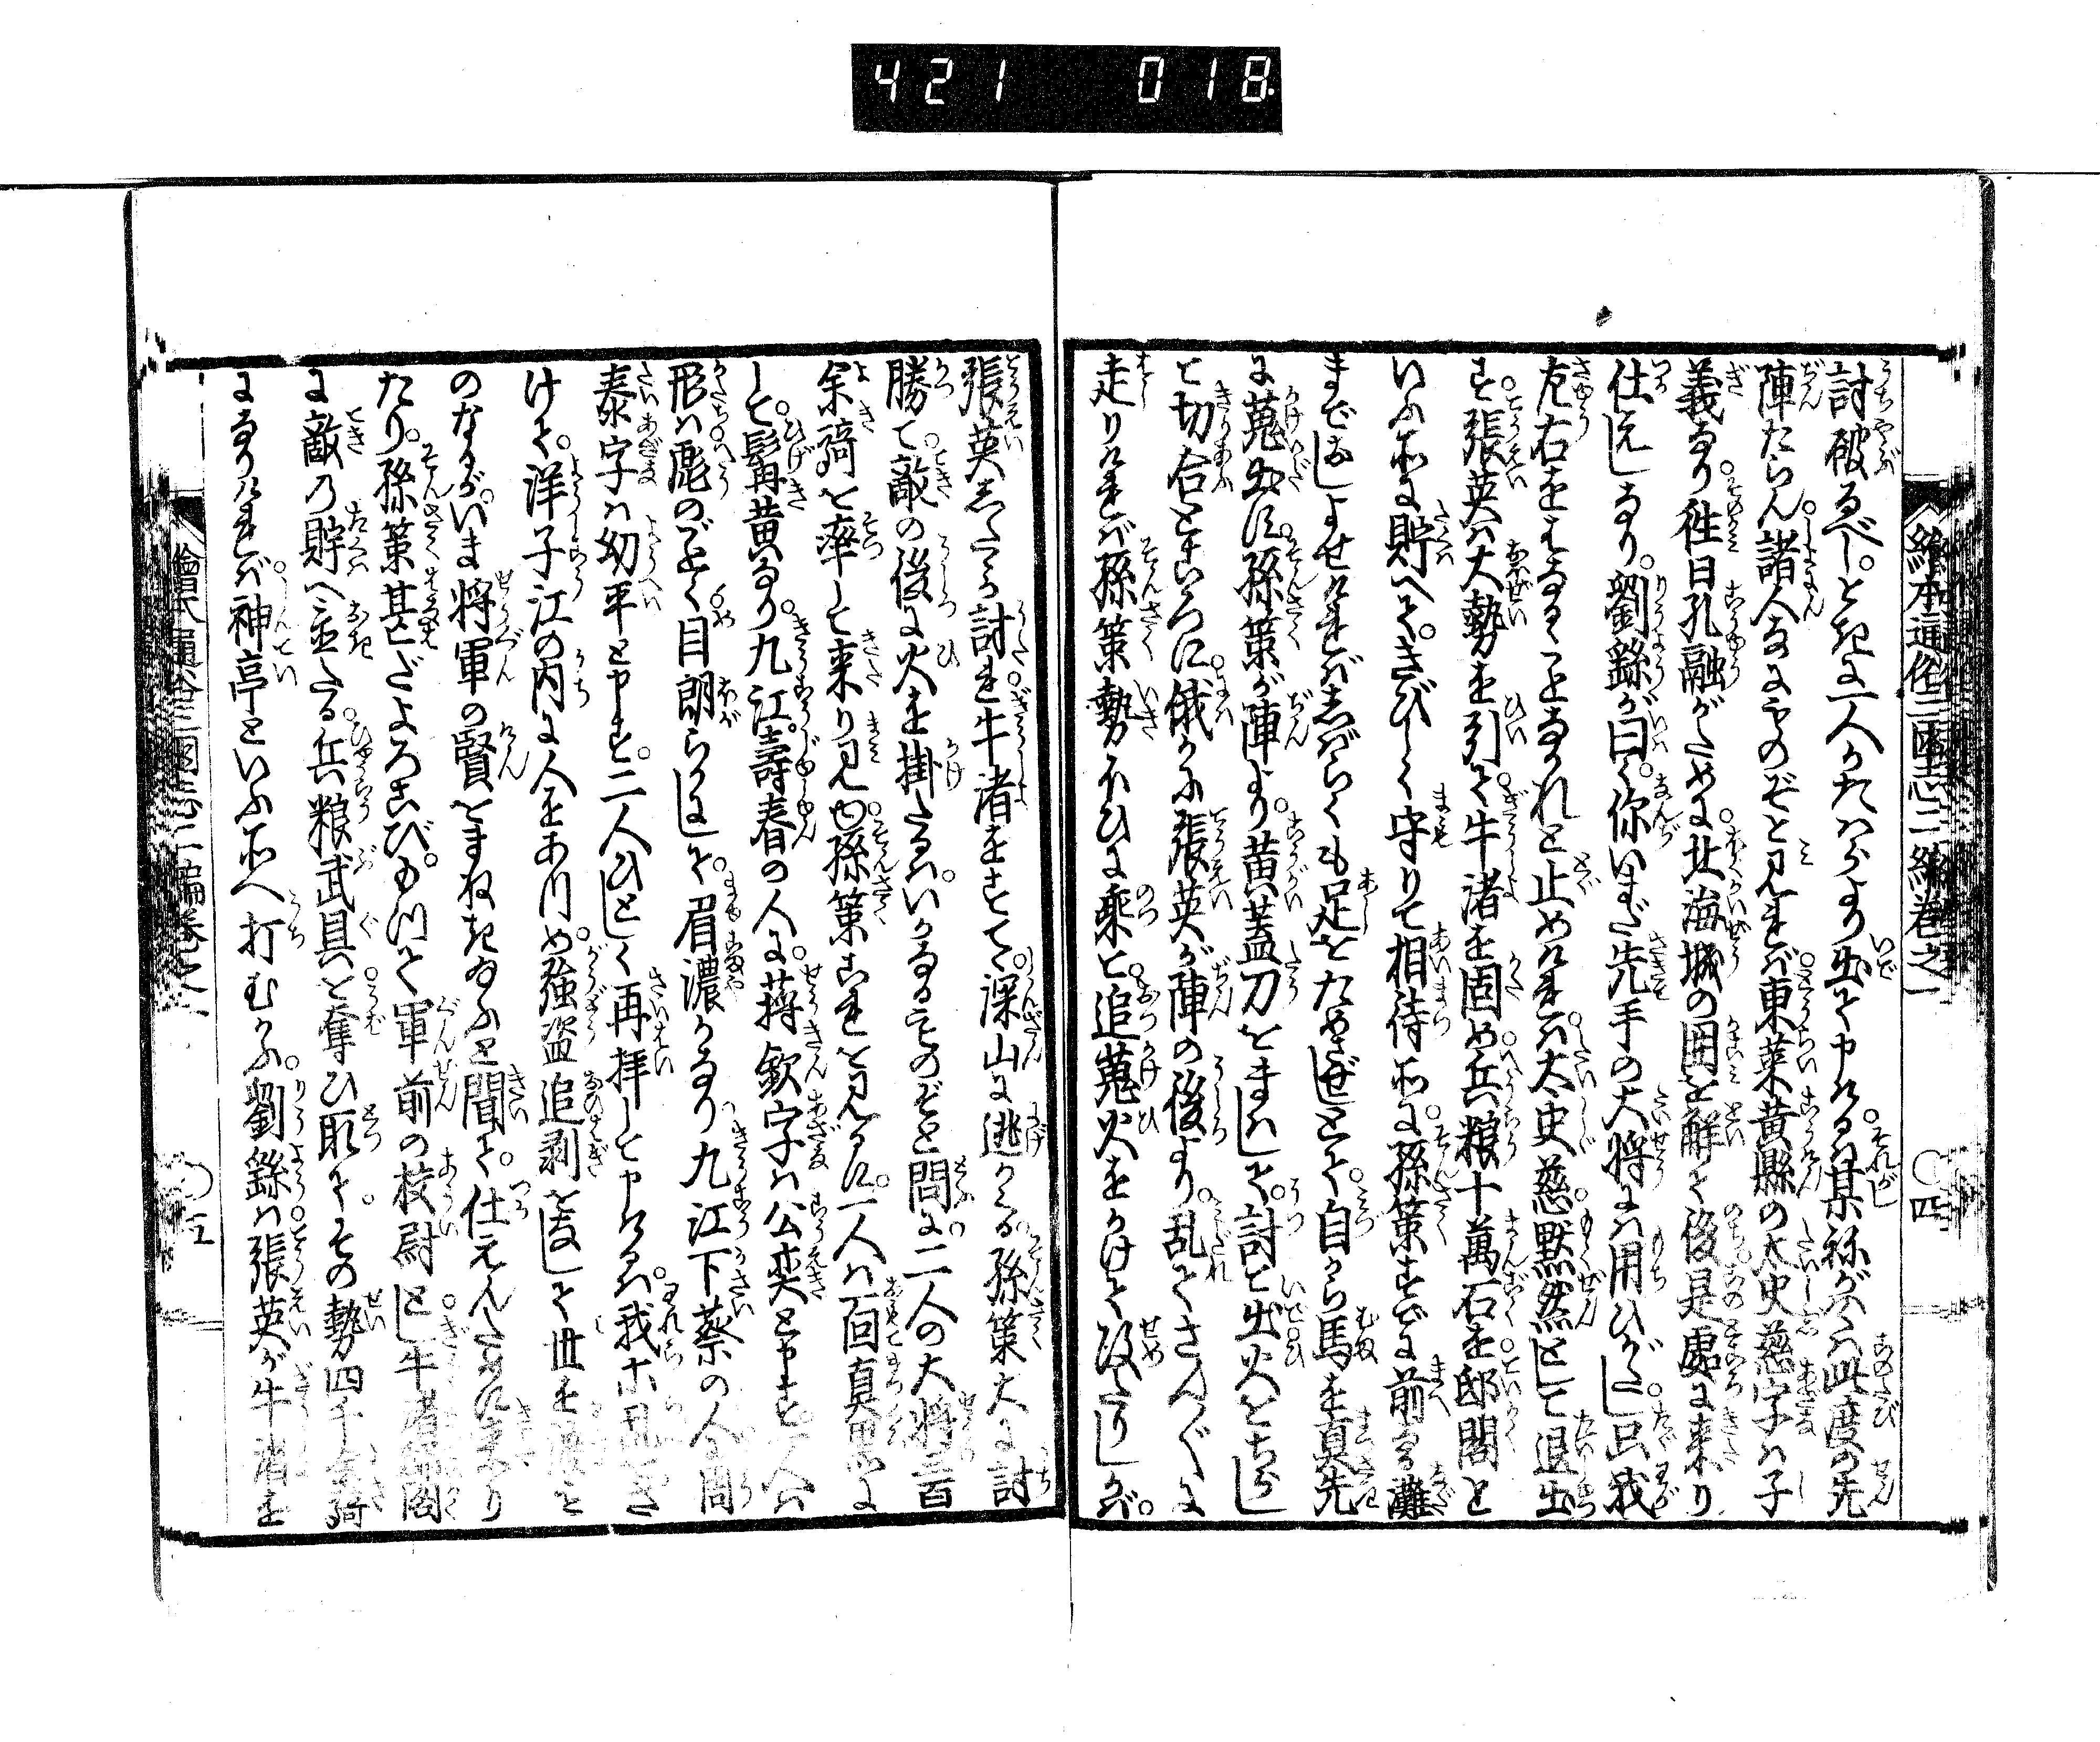 421 018
繪本通俗三國志二編卷之一
〇四
討破るべしとき に一人かたハらより出て申けるハ某ねがハくハ此度の先
陣たらん諸人なにものぞと見れば東萊黄縣の太史慈字ハ子
義なり徃日孔融がために北海城の囲を解て後是處に来り
仕えしなり劉繇が曰く你いまだ先手の大将にハ用ひがたし只我
左右をはなるゝことなかれと止めければ太史慈黙然として退出
す張英ハ大勢を引て牛渚を固め兵粮十萬石を邸閣と
いふ所に貯へてきびしく守りて相待所に孫策すでに前なる灘
までおしよせければしばらくも足をためさせじとて自から馬を真先
に蒐出に孫策が陣より黄蓋刀をまはして討て出火をちらし
て切合ところに俄かに張英が陣の後より乱てさんぐに
走りければ孫策勢ひに乗て追蒐火をかけて攻たりしかば
張英したゝか討れ牛渚をすてて深山に逃かくる孫策大に討
勝て敵の後に火を掛たるハいかなるものぞと問に二人の大将三百
余騎を率して来り見ゆ孫策これを見るに一人ハ面真黒に
して髯黄なり九江壽春の人に蒋欽字ハ公奕と申す一人ハ
形ハ彪のごとく目朗らかにして眉濃かなり九江下蔡の人に周
泰字ハ幼平と申す二人ひとしく再拝して申けるハ我ホ乱をさ
けて洋子江の内に人をあつめ強盗追剥をなして世を渡る
のなるがいま将軍の賢をまねき給ふと聞て仕えんために来り
たり孫策甚だよろこびもつて軍前の校尉とし牛渚邸閣
に敵の貯へ置たる兵粮武具を奪ひ取てその勢四千余騎
になりければ神亭といふ所へ打むかふ劉繇ハ張英が牛渚を
繪本通俗三國志二編卷之一
〇五